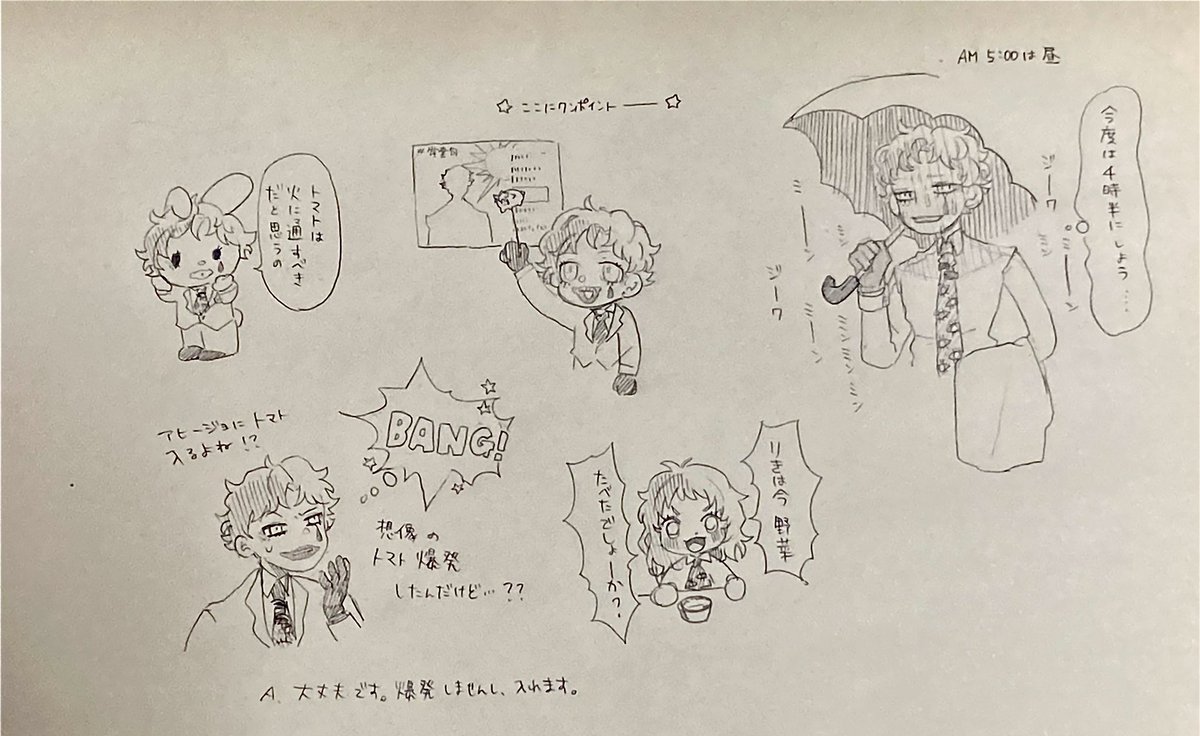 AM 5:00は昼
今度は4時半にしよう....
ジーワ
ミーーン
ミン
ミーーン
ジーワ
ミーーン
ミンミン
ミン
☆ ここにワンポイント ー ☆
トマトは
火に通すべき
だと思うの
アヒージョにトマト
入るよね!?
BANG!
想像の
トマト爆発
したんだけど…??
りきは今 野菜
たべたでしょーか?
A. 大丈夫です。爆発しませんし、入れます。